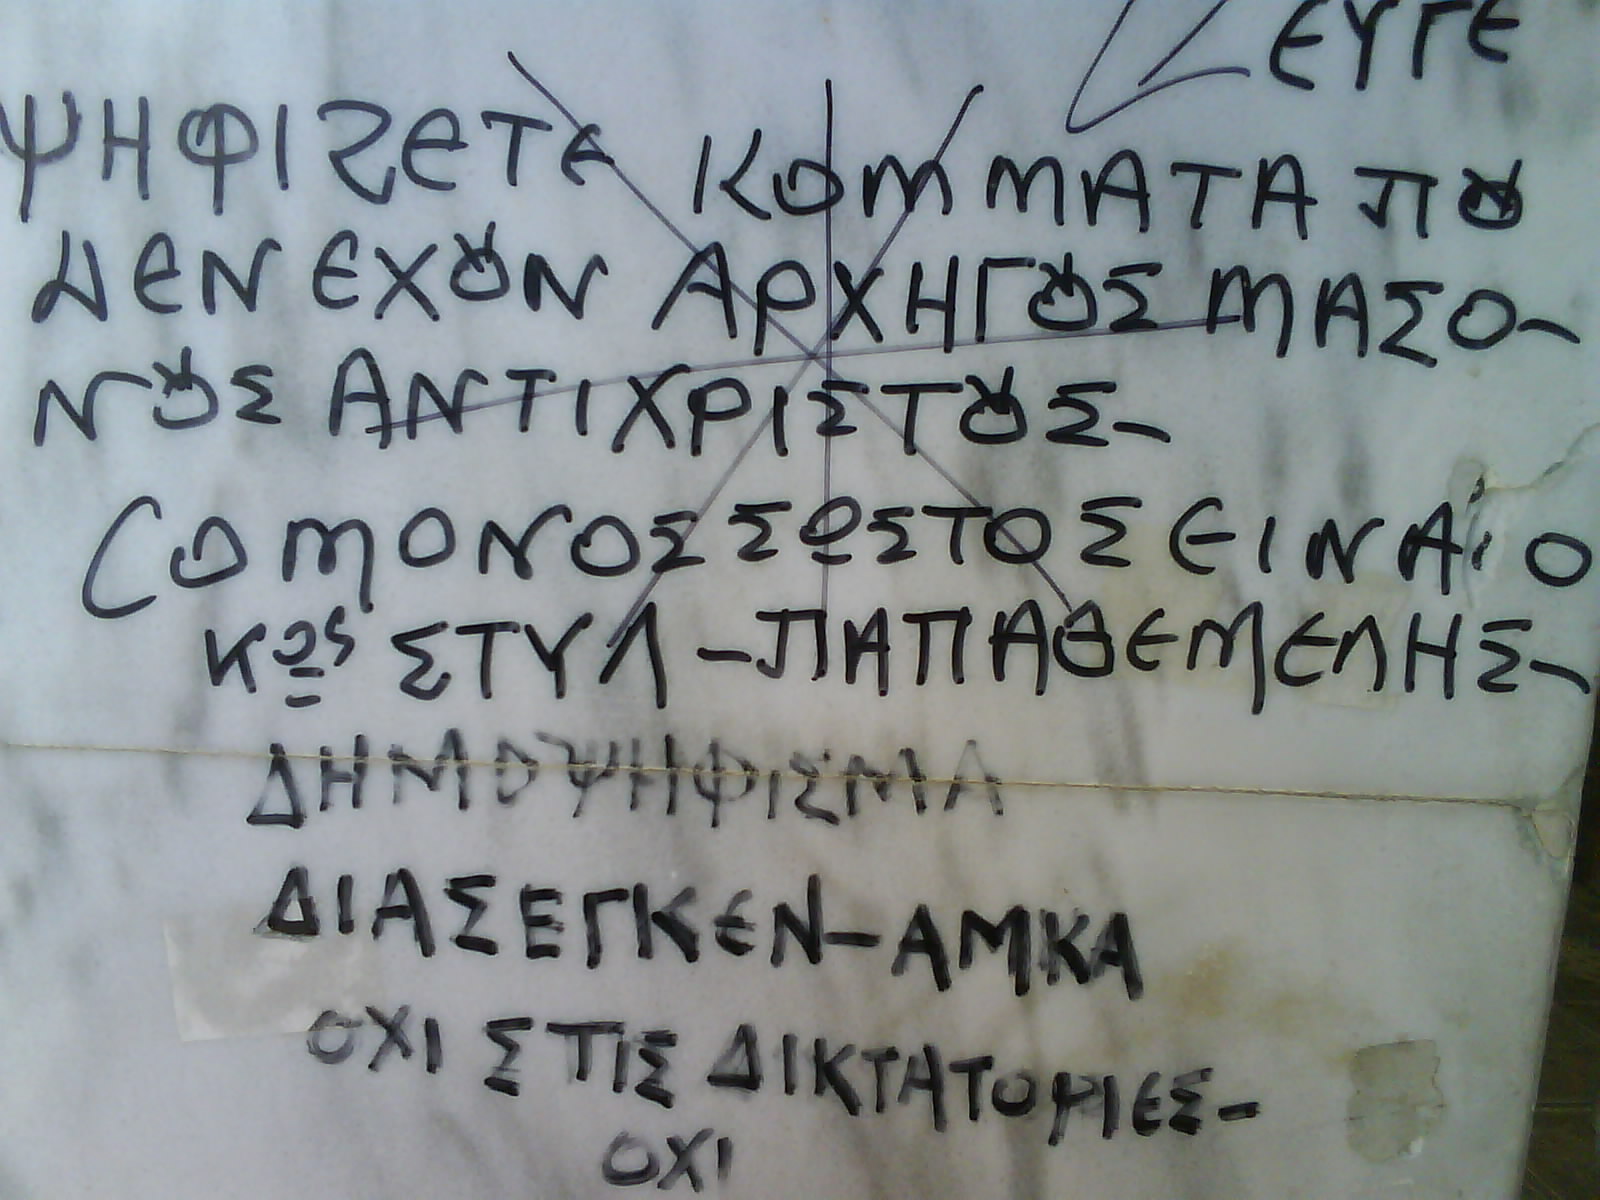 ΕΥΓΕ
ΨΗΦΙΖΕΤΕ ΚΟΜΜΑΤΑ ΠȢ
ΔΕΝ ΕΧȢΝ ΑΡΧΗΓȢΣ ΜΑΣΟ-
ΝȢΣ ΑΝΤΙΧΡΙΣΤȢΣ-
(Ο ΜΟΝΟΣ ΣΩΣΤΟΣ ΕΙΝΑΙ Ο
ΚΩΣ ΣΤΥΛ-ΠΑΠΑΘΕΜΕΛΗΣ-
ΔΗΜΟΨΗΦΙΣΜΑ
ΔΙΑ ΣΕΓΚΕΝ-ΑΜΚΑ
ΟΧΙ ΣΤΙΣ ΔΙΚΤΑΤΟΡΙΕΣ-
ΟΧΙ